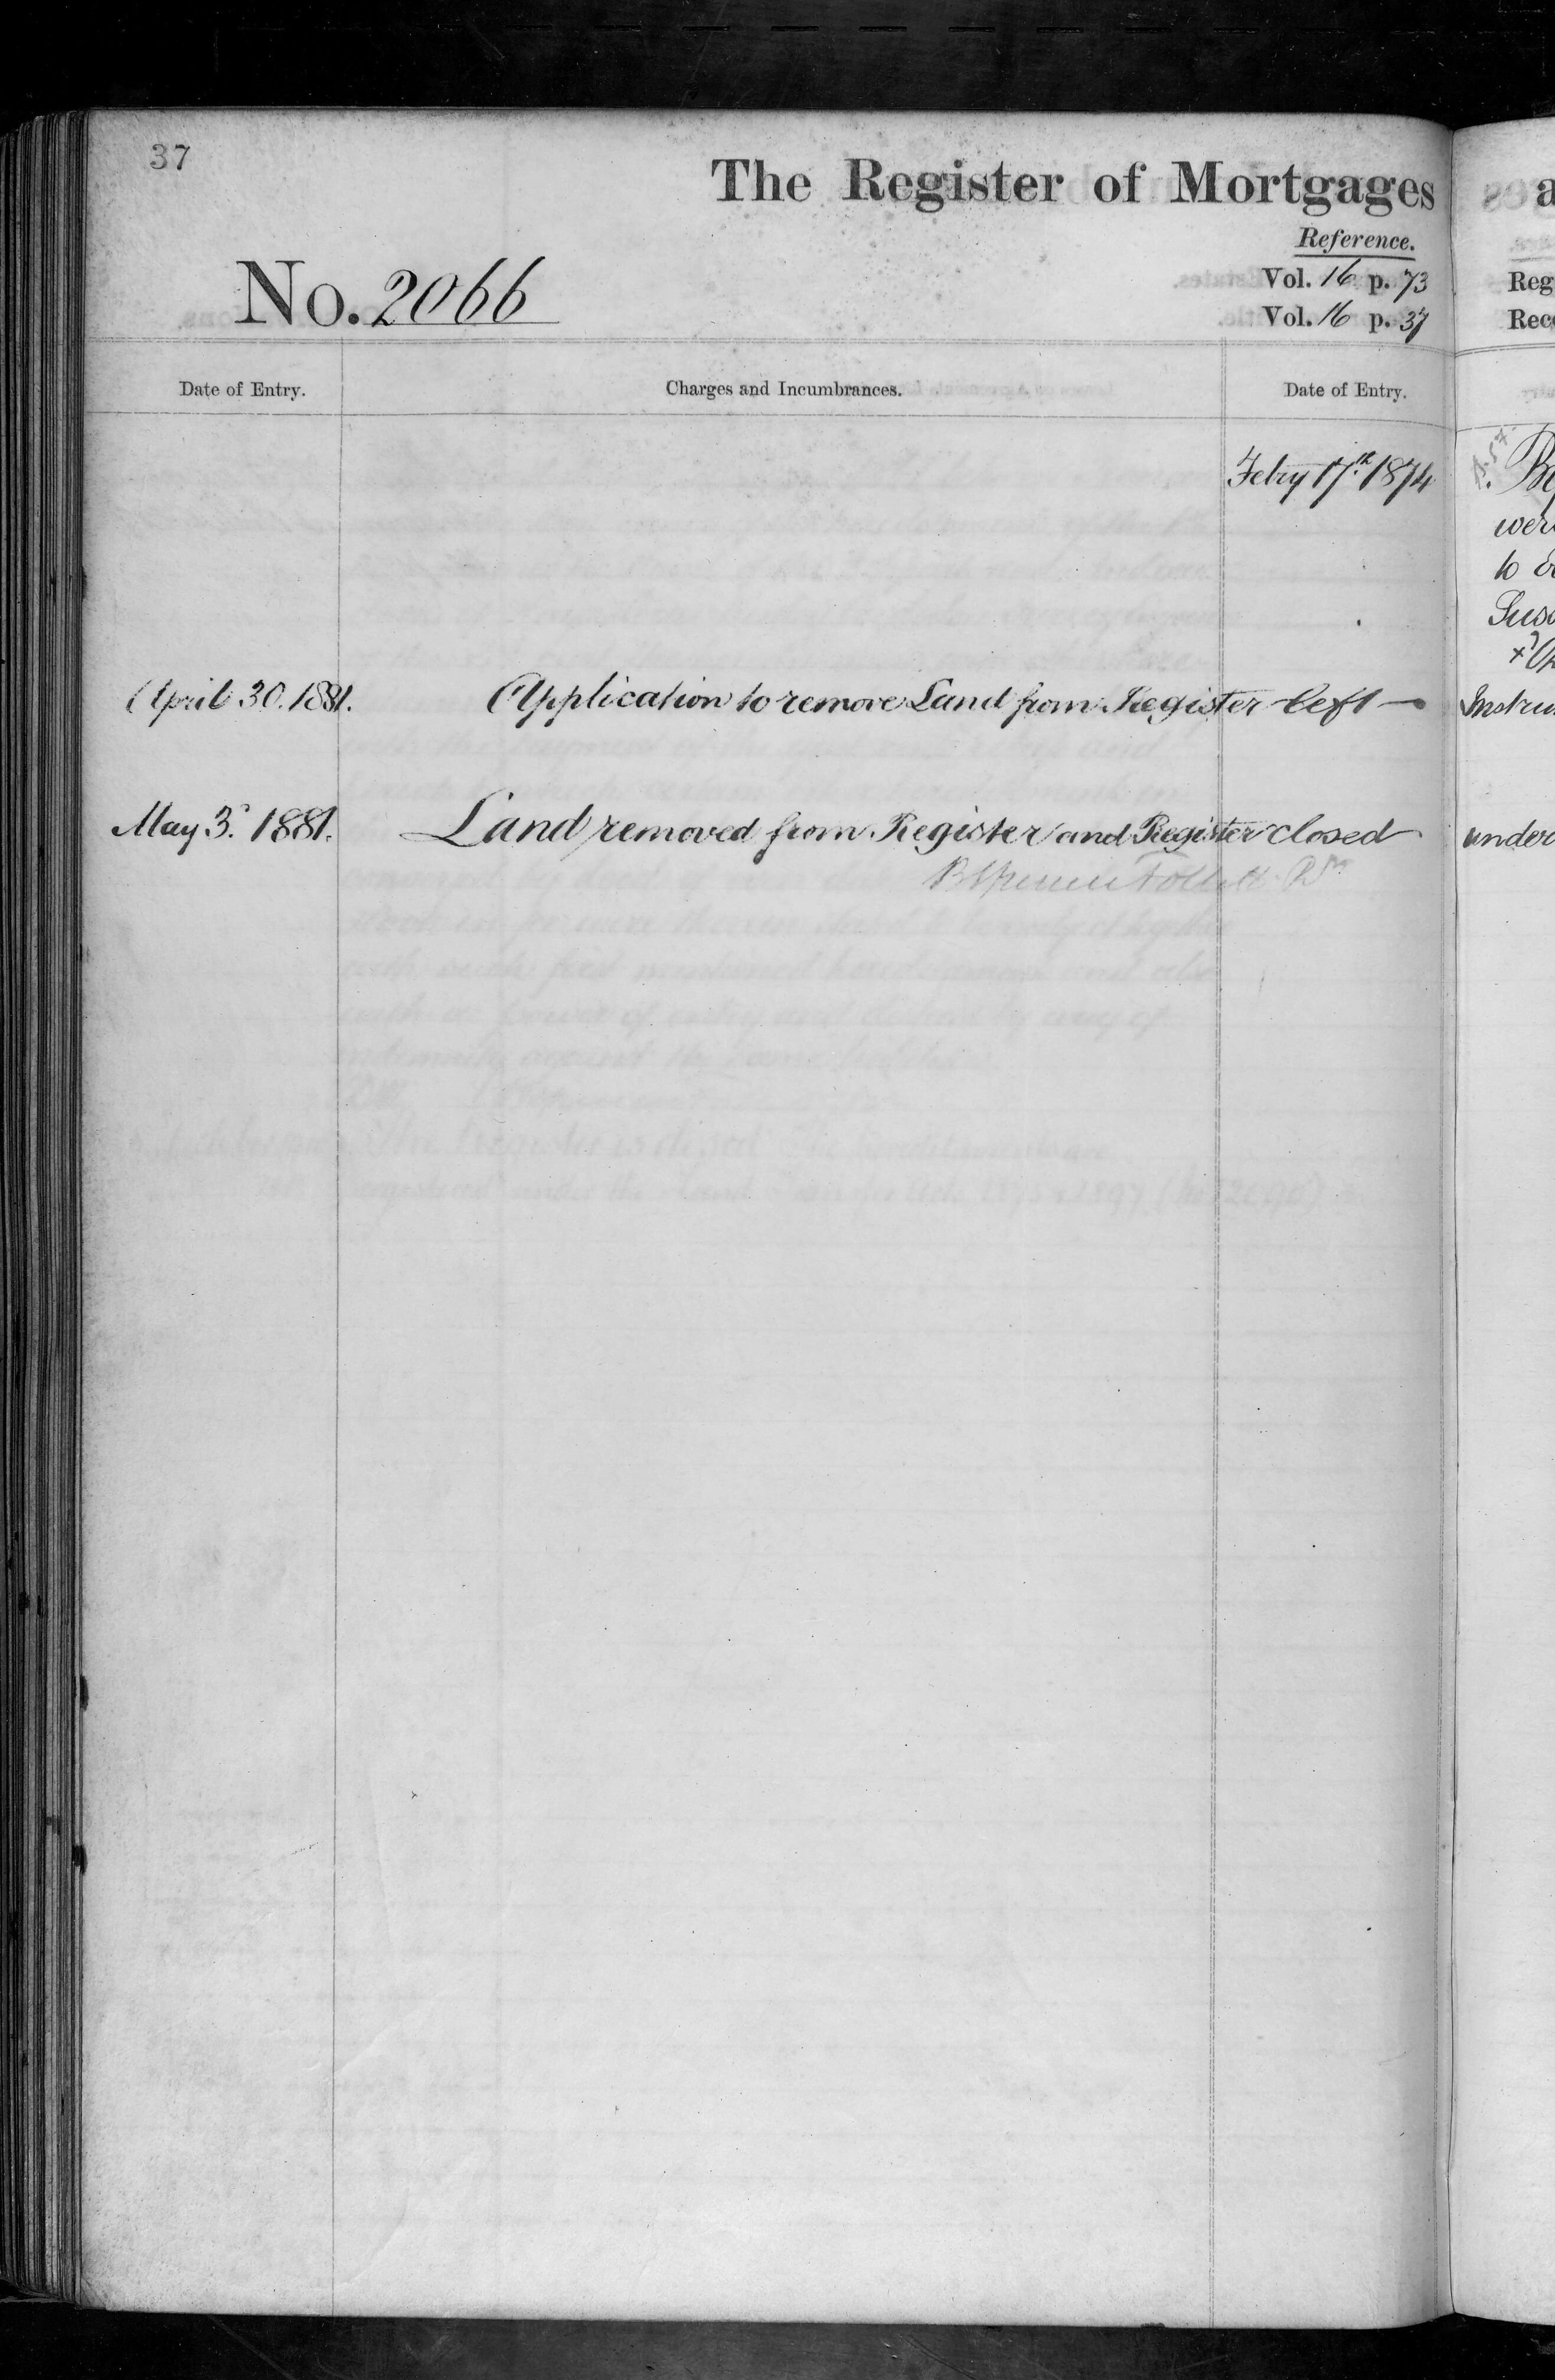 37
The Register of Mortgages
Reference.
No. 2066
Vol. 16 p. 73
Vol. 16 p. 37
Date of Entry.
Charges and Incumbrances.
Date of Entry.
Febry 17th. 1874
April 30. 1881.
Application to remove Land from Register left
May 3d. 1881.
Land removed from Register and Register closed
Follett
a
Reg
Rec
wer
to
Instru
under